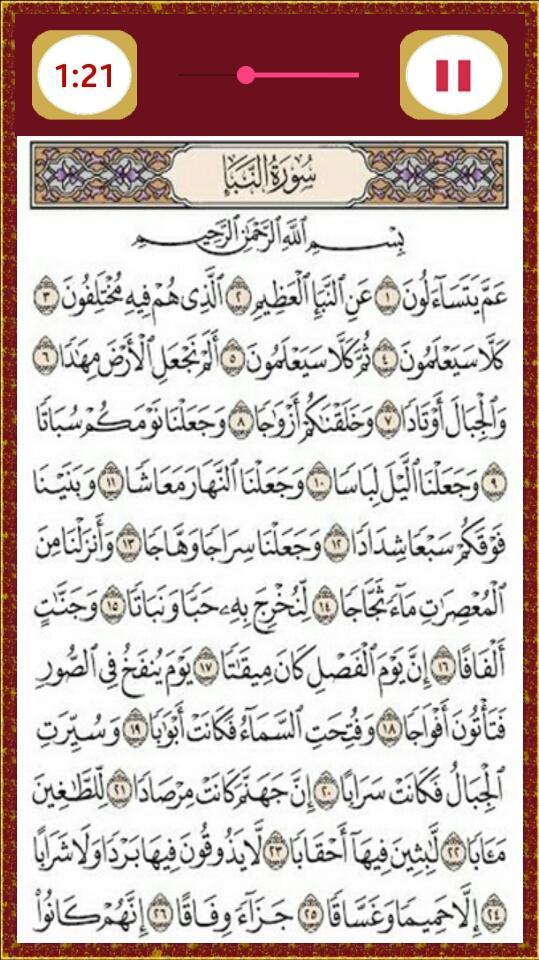 1:21
سُورَةُ النَّبَإِ
بِسْمِ ٱللَّهِ ٱلرَّحْمَٰنِ ٱلرَّحِيمِ
عَمَّ يَتَسَآءَلُونَ ١ عَنِ ٱلنَّبَإِ ٱلْعَظِيمِ ٢ ٱلَّذِى هُمْ فِيهِ مُخْتَلِفُونَ ٣
كَلَّا سَيَعْلَمُونَ ٤ ثُمَّ كَلَّا سَيَعْلَمُونَ ٥ أَلَمْ نَجْعَلِ ٱلْأَرْضَ مِهَٰدًا ٦
وَٱلْجِبَالَ أَوْتَادًا ٧ وَخَلَقْنَٰكُمْ أَزْوَٰجًا ٨ وَجَعَلْنَا نَوْمَكُمْ سُبَاتًا
٩ وَجَعَلْنَا ٱلَّيْلَ لِبَاسًا ١٠ وَجَعَلْنَا ٱلنَّهَارَ مَعَاشًا ١١ وَبَنَيْنَا
فَوْقَكُمْ سَبْعًا شِدَادًا ١٢ وَجَعَلْنَا سِرَاجًا وَهَّاجًا ١٣ وَأَنزَلْنَا مِنَ
ٱلْمُعْصِرَٰتِ مَآءً ثَجَّاجًا ١٤ لِّنُخْرِجَ بِهِۦ حَبًّا وَنَبَاتًا ١٥ وَجَنَّٰتٍ
أَلْفَافًا ١٦ إِنَّ يَوْمَ ٱلْفَصْلِ كَانَ مِيقَٰتًا ١٧ يَوْمَ يُنفَخُ فِى ٱلصُّورِ
فَتَأْتُونَ أَفْوَاجًا ١٨ وَفُتِحَتِ ٱلسَّمَآءُ فَكَانَتْ أَبْوَٰبًا ١٩ وَسُيِّرَتِ
ٱلْجِبَالُ فَكَانَتْ سَرَابًا ٢٠ إِنَّ جَهَنَّمَ كَانَتْ مِرْصَادًا ٢١ لِّلطَّٰغِينَ
مَـَٔابًا ٢٢ لَّٰبِثِينَ فِيهَآ أَحْقَابًا ٢٣ لَّا يَذُوقُونَ فِيهَا بَرْدًا وَلَا شَرَابًا
٢٤ إِلَّا حَمِيمًا وَغَسَّاقًا ٢٥ جَزَآءً وِفَاقًا ٢٦ إِنَّهُمْ كَانُوا۟